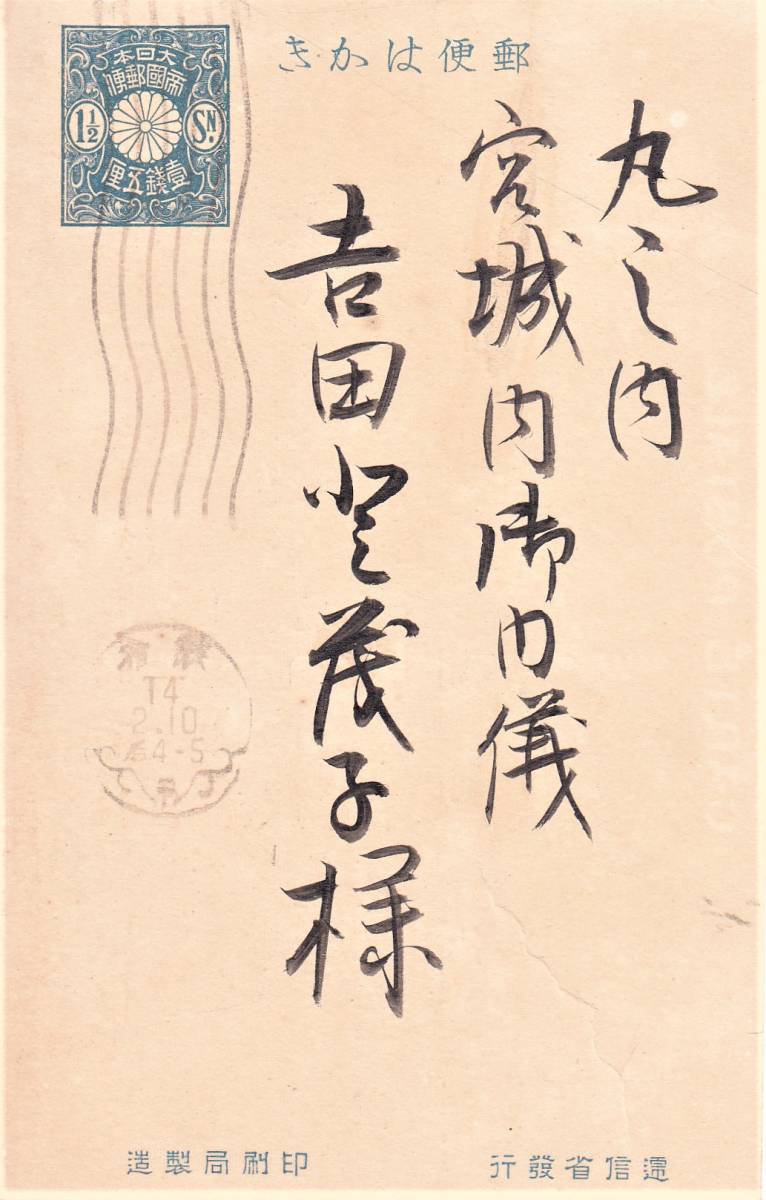 郵便はかき
大日本
帝國郵便
1½ SN.
壹錢五厘
丸之内
宮城内御内儀
吉田登茂子様
14
2.10
4-5
遞信省發行
印刷局製造